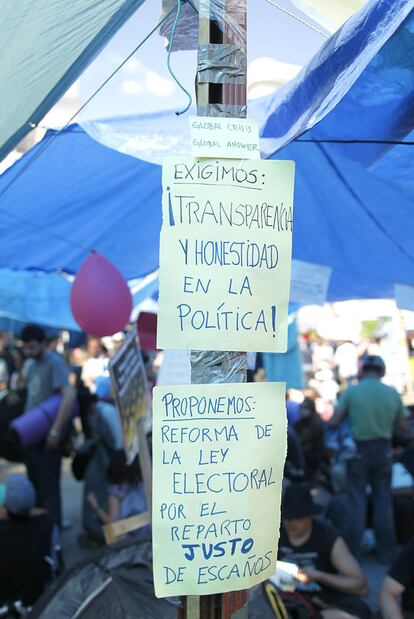 GLOBAL CRISIS
GLOBAL ANSWER
EXIGIMOS:
¡TRANSPARENCIA
Y HONESTIDAD
EN LA
POLÍTICA!
PROPONEMOS:
REFORMA DE
LA LEY
ELECTORAL
POR EL
REPARTO
JUSTO
DE ESCAÑOS